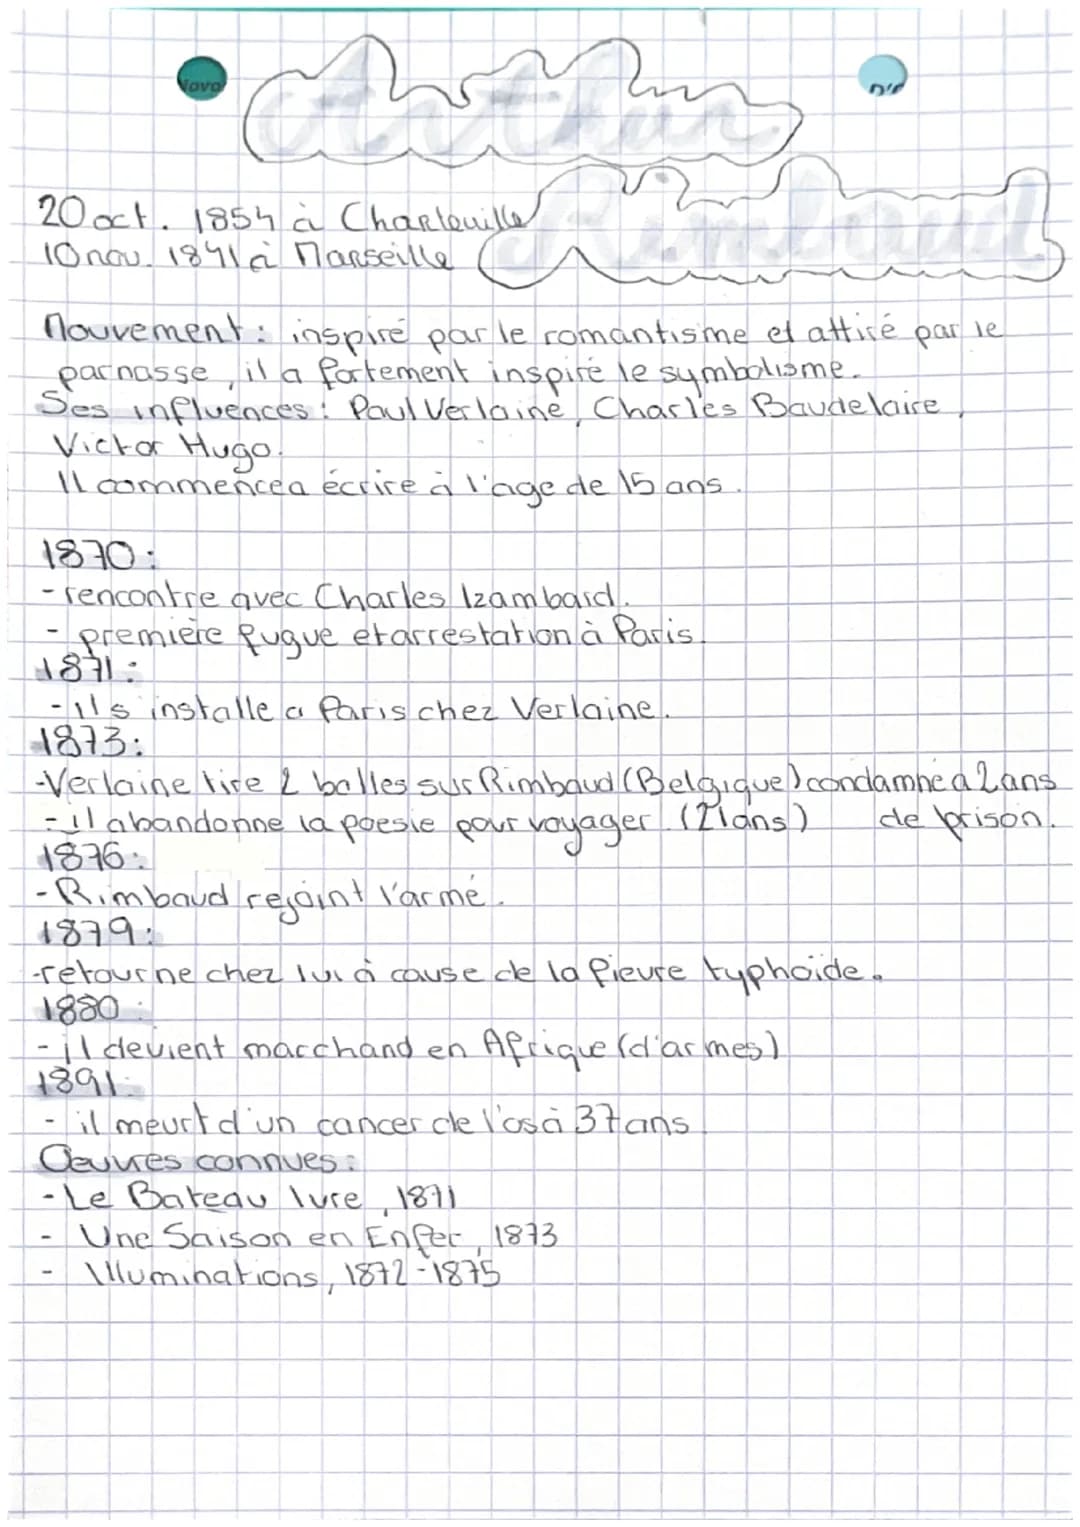 Arthur
Rimbaud
20 oct. 1854 à Charleville
10 nov. 1841 à Marseille
Mouvement : inspiré par le romantisme et attiré par le
parnasse, il a fortement inspiré le symbolisme.
Ses influences : Paul Verlaine, Charles Baudelaire,
Victor Hugo.
Il commence a écrire à l'age de 15 ans.
1870 :
- rencontre avec Charles Izambard.
- première fugue et arrestation à Paris.
1871 :
- il s'installe a Paris chez Verlaine.
1873 :
- Verlaine tire 2 balles sur Rimbaud (Belgique) condamné a 2 ans
de prison.
- il abandonne la poesie pour voyager. (21ans)
1876 :
- Rimbaud rejoint l'armé.
1879 :
- retourne chez lui à cause de la fievre typhoïde.
1880 :
- il devient marchand en Afrique (d'armes)
1891 :
- il meurt d'un cancer de l'os à 37 ans.
Œuvres connues :
- Le Bateau Ivre, 1871
- Une Saison en Enfer, 1873
- Illuminations, 1872-1875